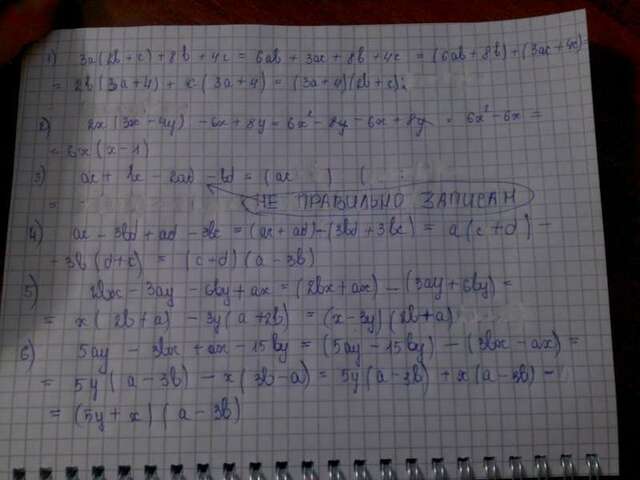 1) 3a(2b+c)+8b+4c = 6ab+3ac+8b+4c = (6ab+8b)+(3ac+4c)
= 2b(3a+4)+c(3a+4) = (3a+4)(2b+c);
2) 2x(3x-4y)-6x+8y = 6x²-8y-6x+8y = 6x²-6x =
= 6x(x-1)
3) ac+bc-2ad-bd = (ac ) (
= НЕ ПРАВИЛЬНО ЗАПИСАН
4) ac-3bd+ad-3bc = (ac+ad)-(3bd+3bc) = a(c+d)-
-3b(d+c) = (c+d)(a-3b)
5) 2bx-3ay-6by+ax = (2bx+ax)-(3ay+6by) =
= x(2b+a)-3y(a+2b) = (x-3y)(2b+a)
6) 5ay-3bx+ax-15by = (5ay-15by)-(3bx-ax) =
= 5y(a-3b)-x(3b-a) = 5y(a-3b)+x(a-3b) =
= (5y+x)(a-3b)